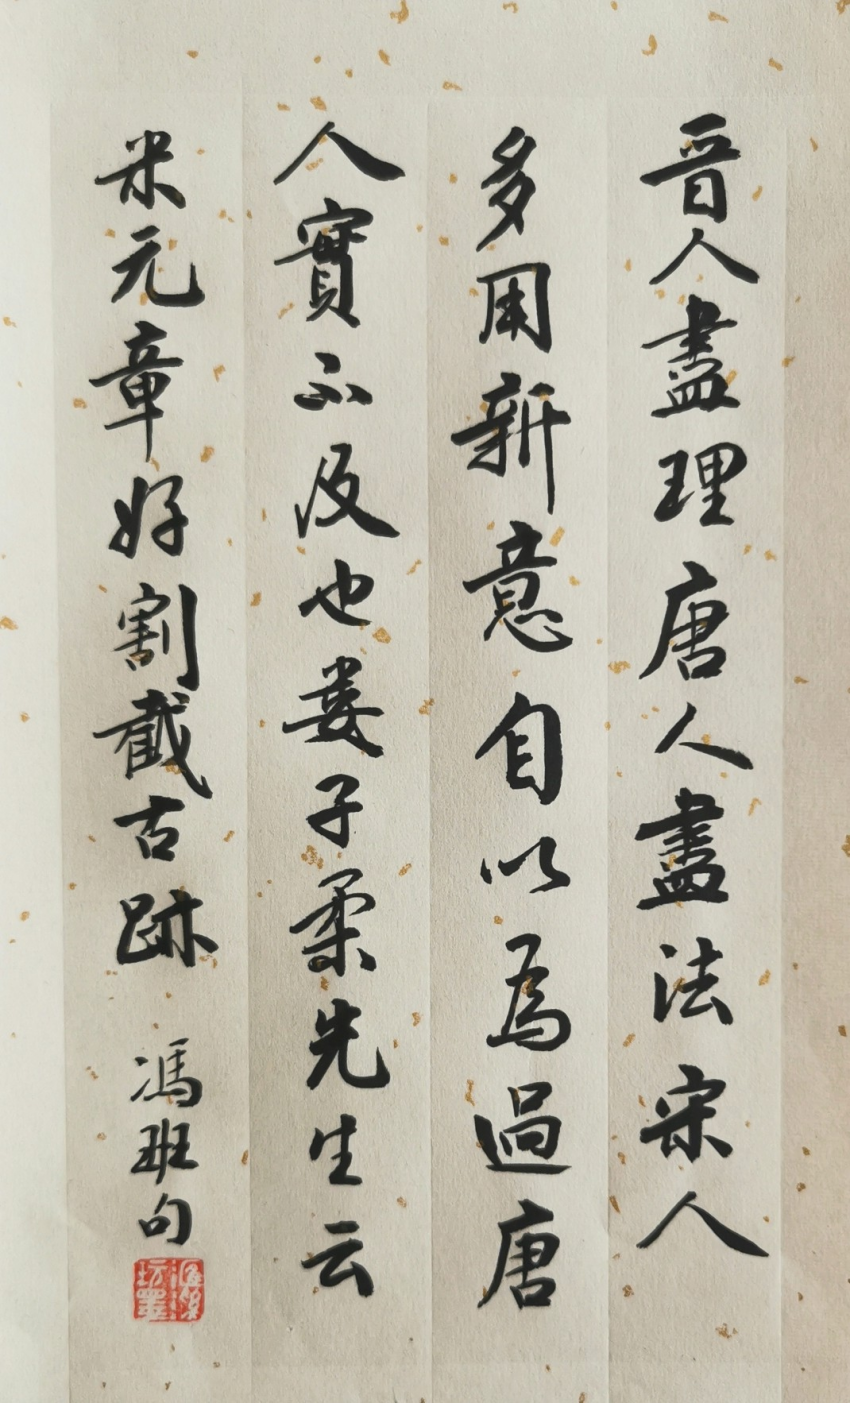 晋人盡理唐人盡法宋人
多用新意自以為過唐
人實不及也婁子柔先生云
米元章好割截古跡
馮班句